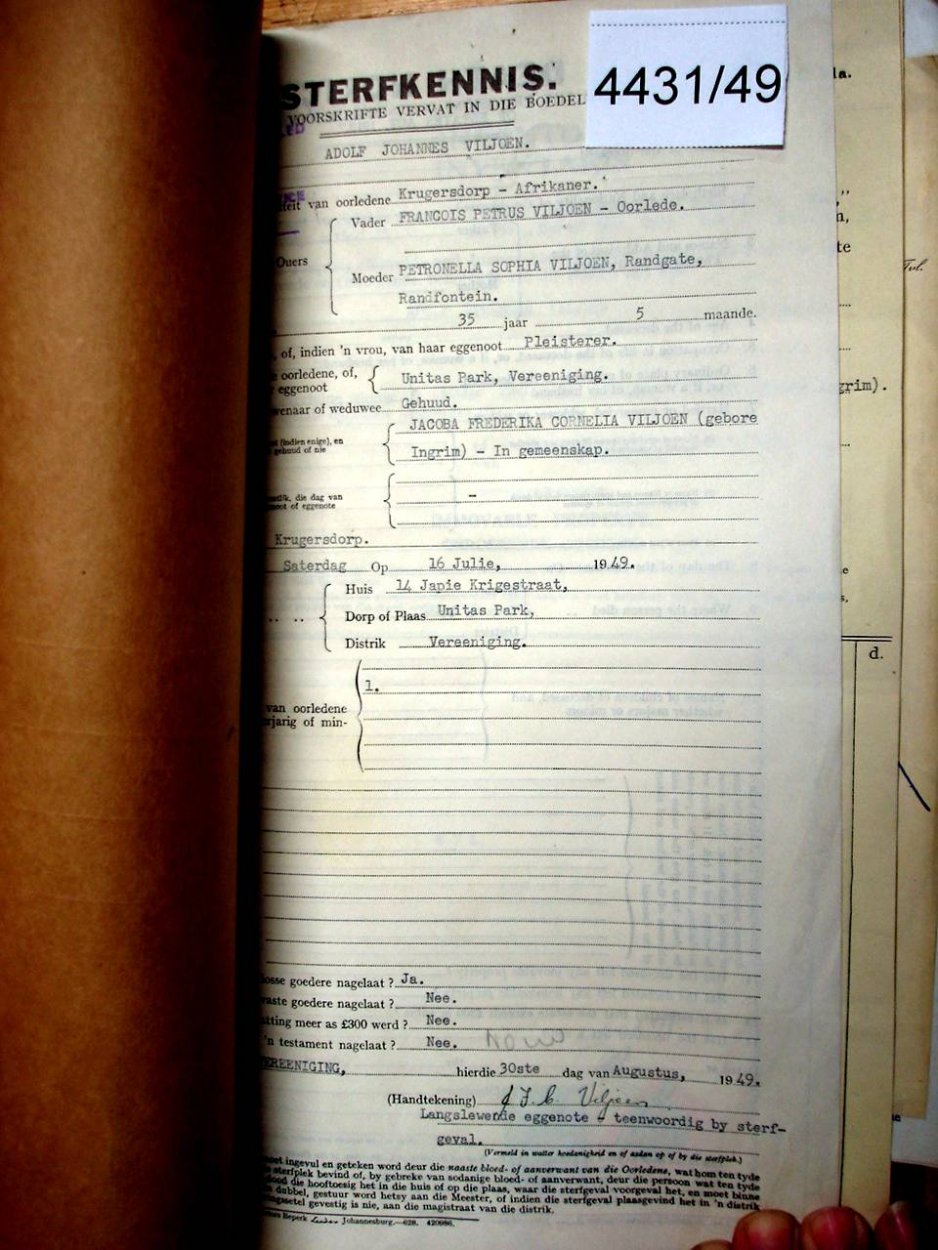 STERFKENNIS.
4431/49
VOORSKRIFTE VERVAT IN DIE BOEDEL
ADOLF JOHANNES VILJOEN.
van oorledene Krugersdorp - Afrikaner.
Vader FRANCOIS PETRUS VILJOEN - Oorlede.
Ouers
Moeder PETRONELLA SOPHIA VILJOEN, Randgate,
Randfontein.
35 jaar 5 maande.
, of, indien 'n vrou, van haar eggenoot Pleisterer.
oorledene, of,
eggenoot Unitas Park, Vereeniging.
wenaar of weduwee Gehuud.
(indien enige), en
gehuud of nie
JACOBA FREDERIKA CORNELIA VILJOEN (gebore
Ingrim) - In gemeenskap.
die dag van
of eggenote -
Krugersdorp.
Saterdag Op 16 Julie, 1949.
Huis 14 Japie Krigestraat,
Dorp of Plaas Unitas Park,
Distrik Vereeniging.
1.
van oorledene
rjarig of min-
osse goedere nagelaat ? Ja.
vaste goedere nagelaat ? Nee.
tting meer as £300 werd ? Nee.
'n testament nagelaat ? Nee.
VEREENIGING, hierdie 30ste dag van Augustus, 1949.
(Handtekening) J F C Viljoen
Langslewende eggenote - teenwoordig by sterf-
geval.
(Vermeld in watter hoedanigheid en of aldan op of by die sterfplek.)
moet ingevul en geteken word deur die naaste bloed- of aanverwant van die Oorledene, wat hom ten tyde
sterfplek bevind of, by gebreke van sodanige bloed- of aanverwant, deur die persoon wat ten tyde
dood die hooftoesig het in die huis of op die plaas, waar die sterfgeval voorgeval het, en moet binne
dubbel, gestuur word hetsy aan die Meester, of indien die sterfgeval plaasgevind het in 'n distrik
setel gevestig is nie, aan die magistraat van die distrik.
Beperk Johannesburg.—628. 420986.
la.
te
grim).
d.